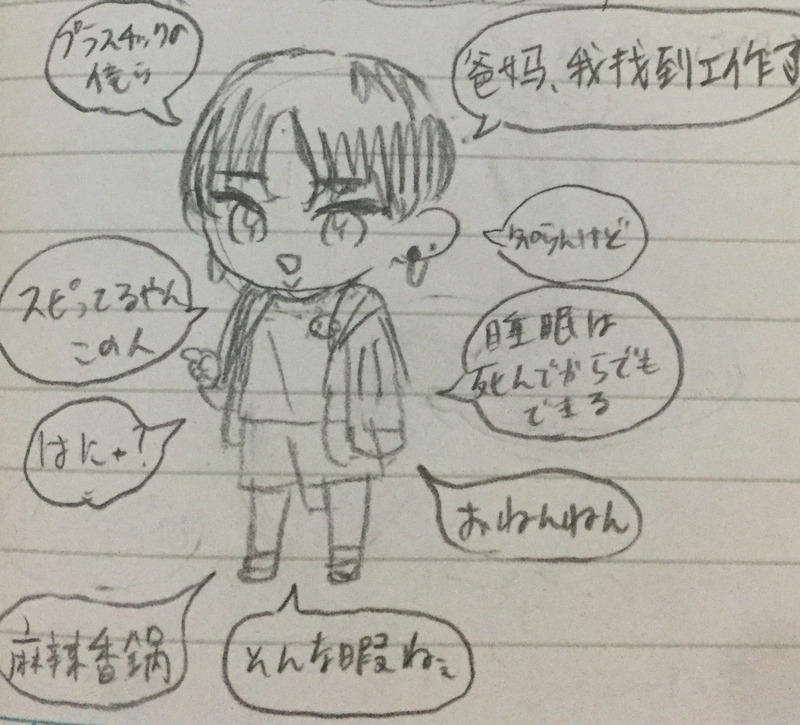 プラスチックの
俺ら
爸妈、我找到工作了
知らんけど
スピってるやん
この人
睡眠は
死んでからでも
できる
はにゃ?
おねんねん
麻辣香锅
そんな暇ねぇ